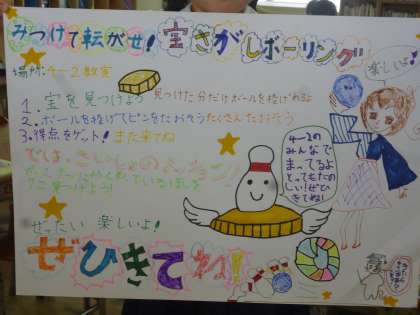 みつけて転がせ!宝さがしボーリング
楽しいよ!
場所:4-2教室
1.宝を見つけよう 見つけた分だけボールを投げれるよ
2.ボールを投げてピンをたおそうたくさんたおそう
3.得点をゲット! また来てね
では、さいしょのミッション!
4-2の
みんなで
まってるよ
とってもたの
しい!ぜひ
きてね!
ぜったい 楽しいよ!
ぜひきてね!